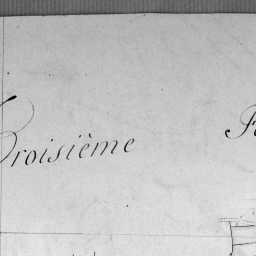 Troisième